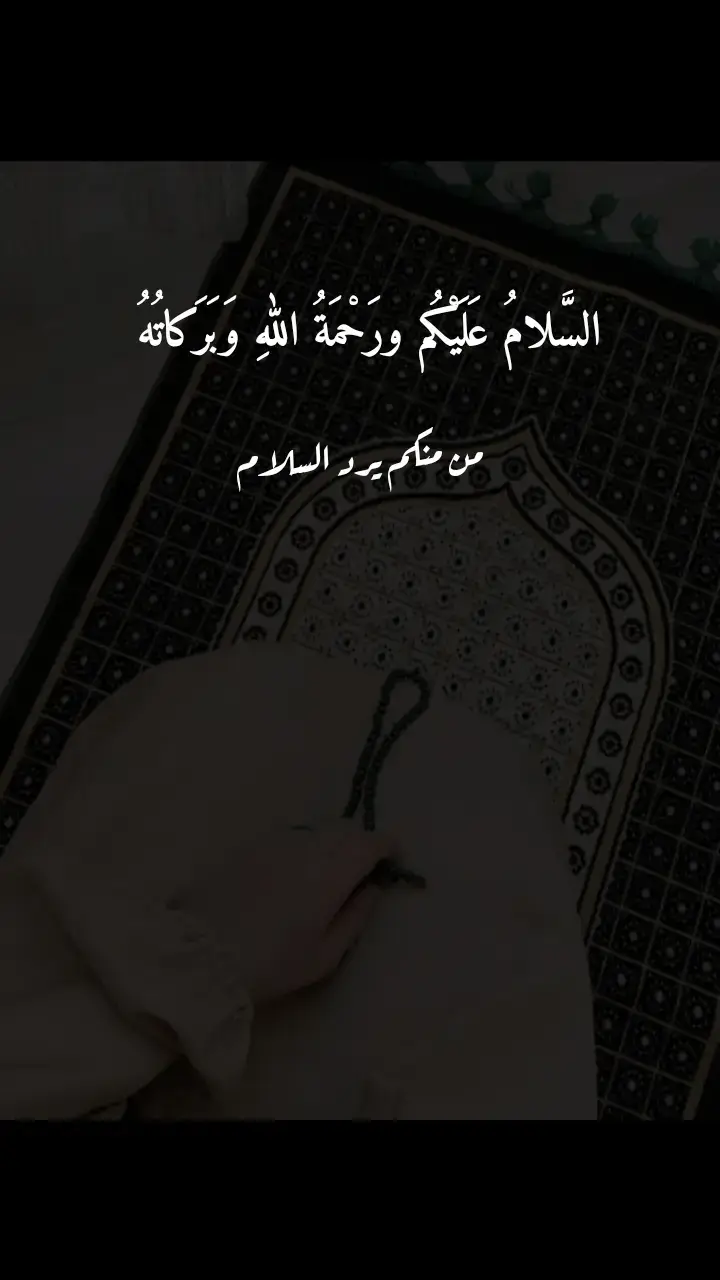 السَّلامُ عَلَيْكُم ورَحْمَةُ اللهِ وَبَرَكاتُهُ
من منكم يرد السلام